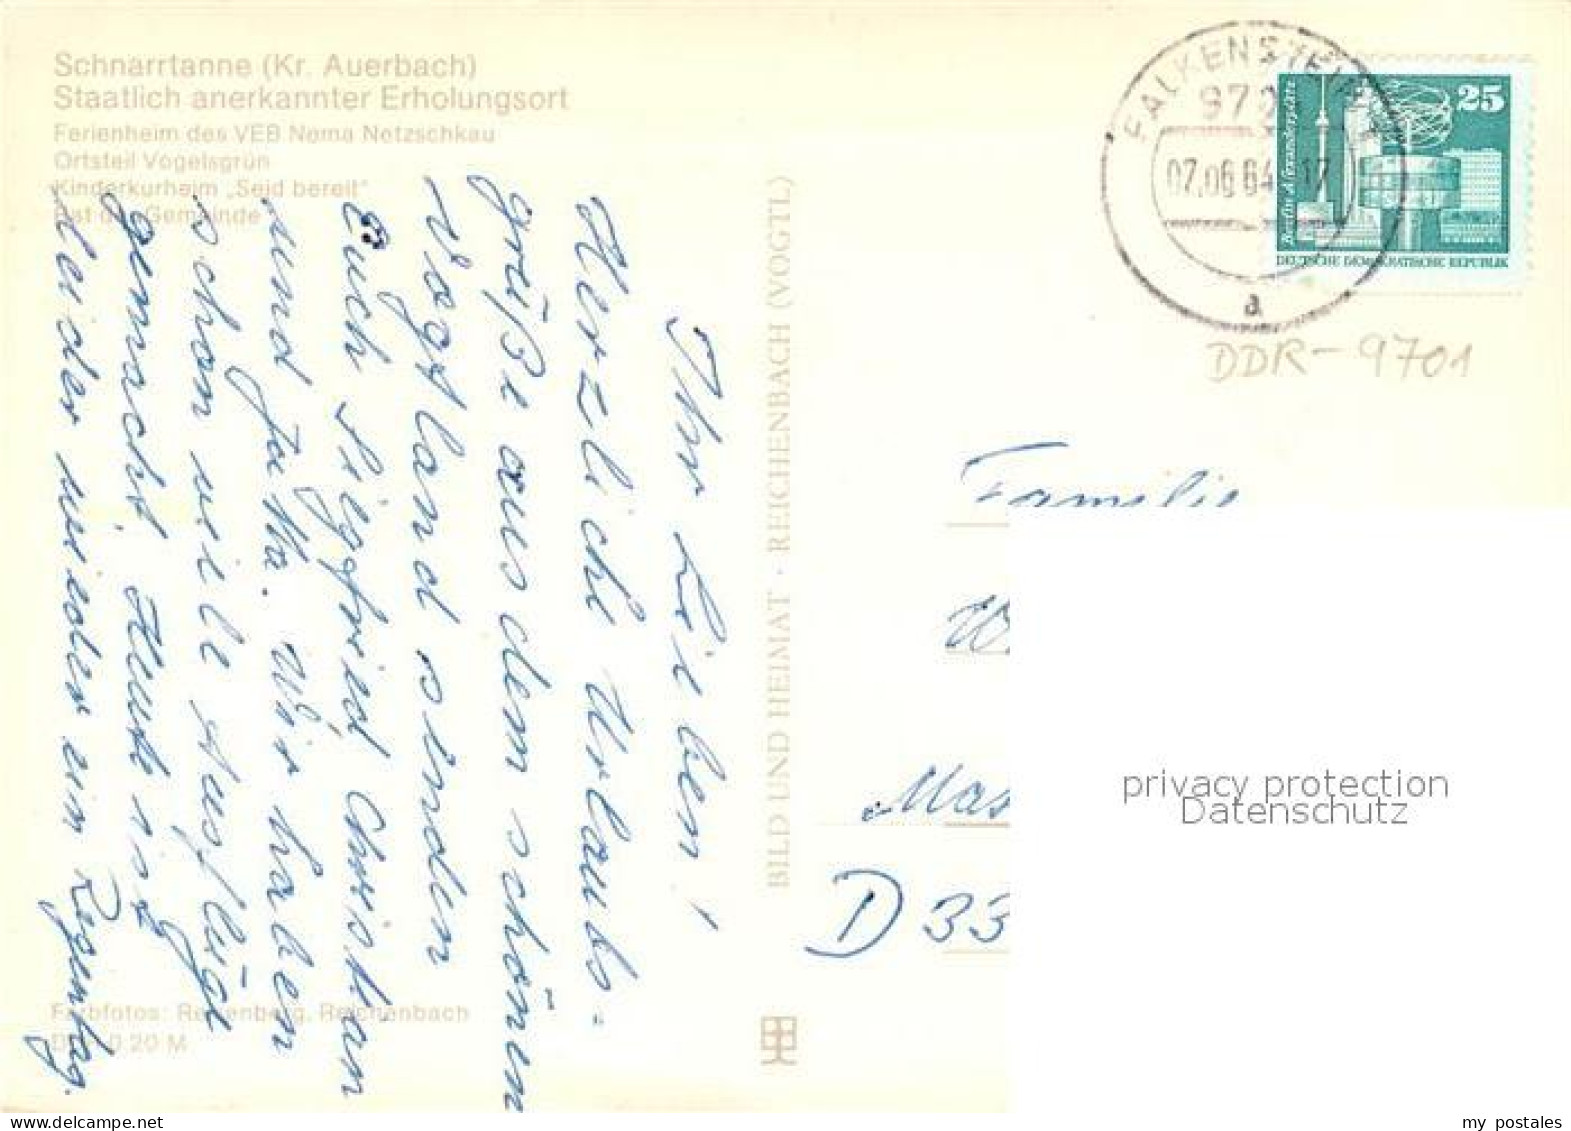 Schnarrtanne (Kr. Auerbach)
Staatlich anerkannter Erholungsort
Ferienheim des VEB Nema Netzschkau
Ortsteil Vogelsgrün
Kinderkurheim „Seid bereit"
Rat der Gemeinde
Ihr Lieben!
Herzliche Urlaubs-
grüße aus dem schönen
Vogtland senden
Euch Siegfried Christian
und Jutta. Wir haben
schon viele Ausflüge
gemacht. Heute ist
leider wieder ein Regentag.
Farbfotos: Reichenbach
0,20 M
BILD UND HEIMAT · REICHENBACH (VOGTL)
FALKENSTEIN
970
07.06.84 17
a
25
Berlin Alexanderplatz
DEUTSCHE DEMOKRATISCHE REPUBLIK
DDR-9701
Familie
W
Mas
D 33
privacy protection
Datenschutz
my_postales